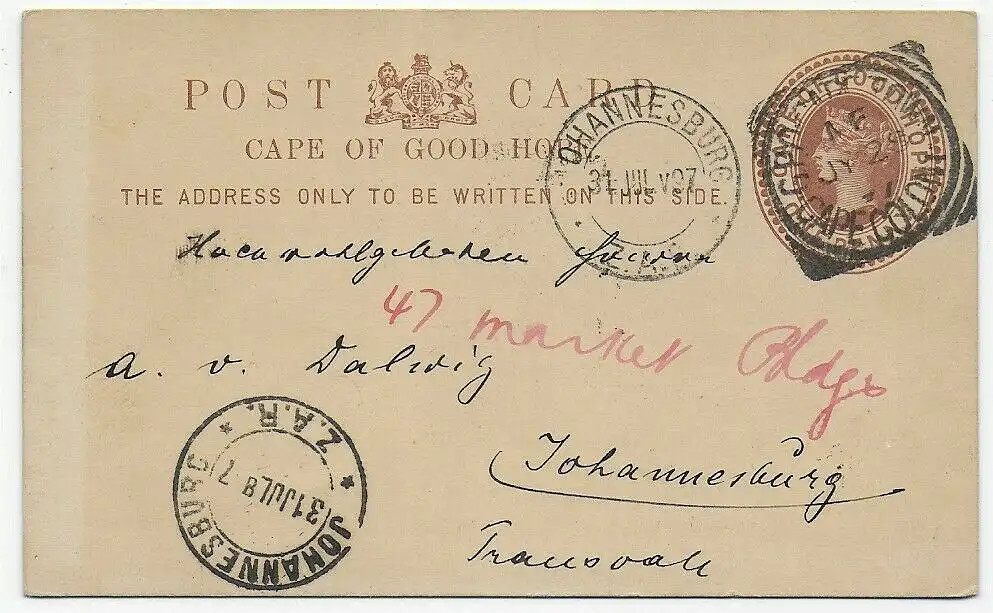 POST CARD
CAPE OF GOOD HOPE
THE ADDRESS ONLY TO BE WRITTEN ON THIS SIDE.
JOHANNESBURG
31 JUL 97
Z.A.R.
CAPE COLONY
Hochwohlgeboren
47 market Bldgs
A. v. Dalwig
Johannesburg
Transvaal
JOHANNESBURG
31 JUL 8 7
Z.A.R.